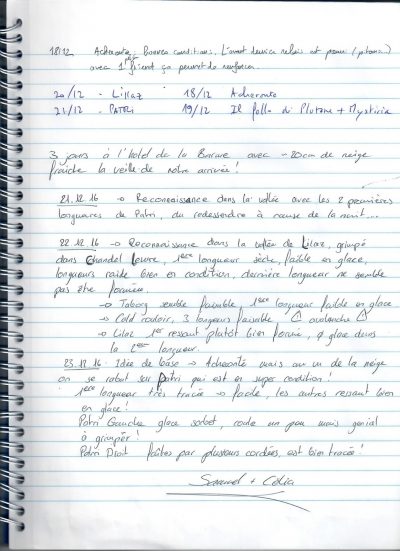 18/12 Acheronte, Bonnes conditions. L'avant dernier relais est pourri (pitons)
avec 1 friend ça permet de renforcer.
20/12 - Lillaz 18/12 Acheronte
21/12 - PATRI 19/12 Il Follo di Plutone + Mysticia
3 jours à l'hotel de la Barme avec ~20cm de neige
fraîche la veille de notre arrivée!
21.12.16 → Reconnaissance dans la vallée avec les 2 premières
longueures de Patri, du redescendre à cause de la nuit...
22.12.16 → Reconnaissance dans la vallée de Lilaz, grimpé
dans Chandel Levre, 1ère longueur sèche, faible en glace,
longueurs raide bien en condition, dernière longueur ne semble
pas être formée.
→ Tuborg semble faisable, 1ère longueur faible en glace
→ Cold couloir, 3 longeurs faisable ⚠ avalanche ⚠
→ Lilaz 1er ressaut plutôt bien formée, ∅ glace dans
la 2ème longueur.
23.12.16 : Idée de base → Acheronte mais au vu de la neige
on se rabat sur Patri qui est en super condition!
1ère longueur très tracée → facile, les autres ressaut bien
en glace!
Patri Gauche glace sorbet, coule un peu mais génial
à grimper!
Patri Droit faîtes par plusieurs cordées, est bien tracée!
Samuel + Célia